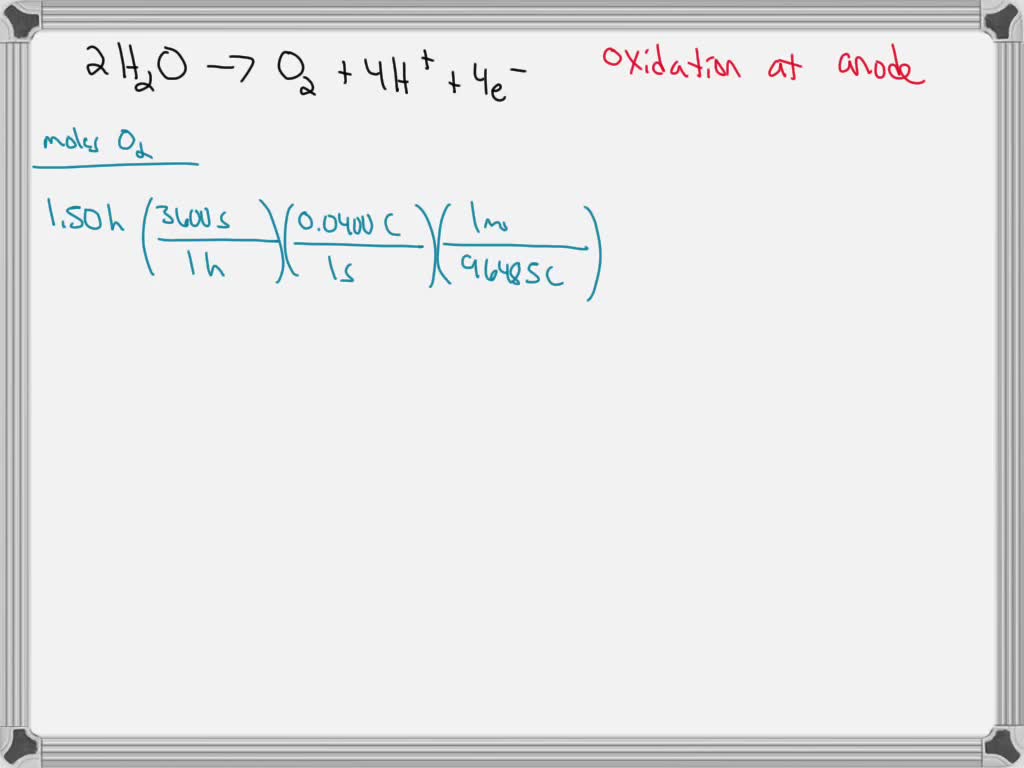 2H₂O → O₂ + 4H⁺ + 4e⁻ oxidation at anode
moles O₂
1.50h (3600s / 1h) (0.0400C / 1s) (1mo / 96485C)